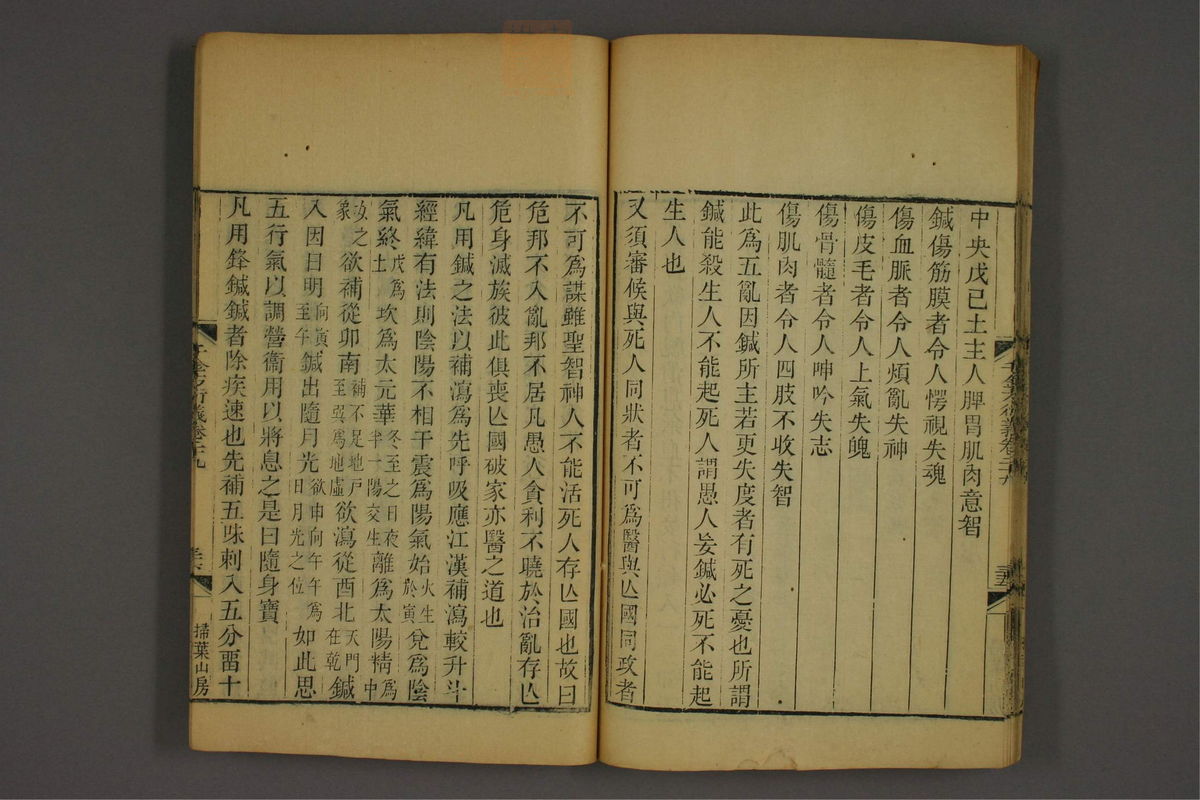 中央戊己土主人脾胃肌肉意智
鍼傷筋膜者令人愕視失魂
傷血脈者令人煩亂失神
傷皮毛者令人上氣失魄
傷骨髓者令人呻吟失志
傷肌肉者令人四肢不收失智
此爲五亂因鍼所主若更失度者有死之憂也所謂
鍼能殺生人不能起死人謂愚人妄鍼必死不能起
生人也
又須審候與死人同狀者不可爲醫與亾國同政者
不可爲謀雖聖智神人不能活死人存亾國也故曰
危邦不入亂邦不居凡愚人貪利不曉於治亂存亾
危身滅族彼此俱喪亾國破家亦醫之道也
凡用鍼之法以補瀉爲先呼吸應江漢補瀉較升斗
經緯有法則陰陽不相干震爲陽氣始火生於寅兌爲陰
氣終戊爲土坎爲太元華冬至之日夜半一陽交生離爲太陽精爲中
象故之欲補從卯南補不足地戶至巽爲地虛欲瀉從酉北天門在乾鍼
入因日明向寅至午鍼出隨月光欲申向午午爲日月光之位如此思
五行氣以調營衞用以將息之是曰隨身寶
凡用鋒鍼鍼者除疾速也先補五呼刺入五分畱十
千金方衍義卷二十九
掃葉山房